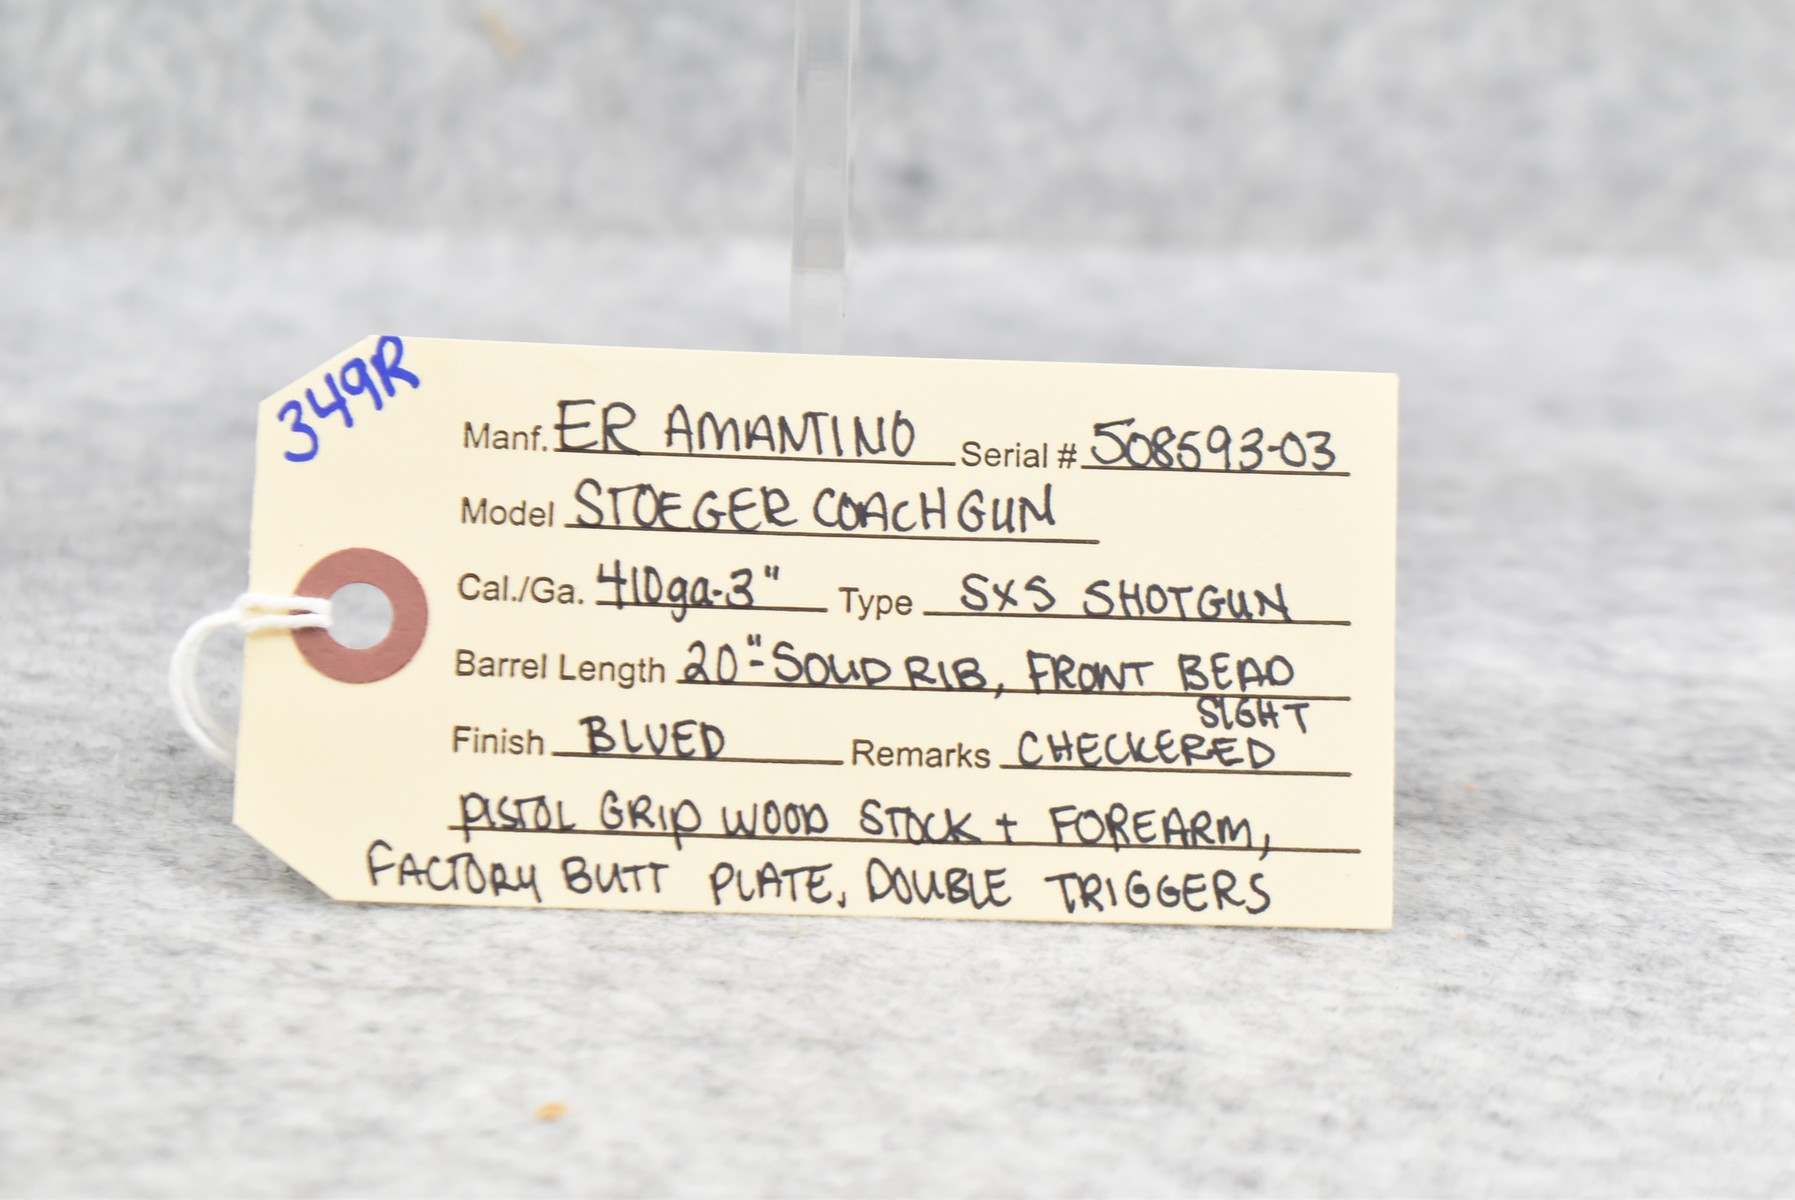 349R
Manf. ER AMANTINO Serial # 508593-03
Model STOEGER COACHGUN
Cal./Ga. 410ga-3" Type SXS SHOTGUN
Barrel Length 20"-SOLID RIB, FRONT BEAD
SIGHT
Finish BLUED Remarks CHECKERED
PISTOL GRIP WOOD STOCK + FOREARM,
FACTORY BUTT PLATE, DOUBLE TRIGGERS